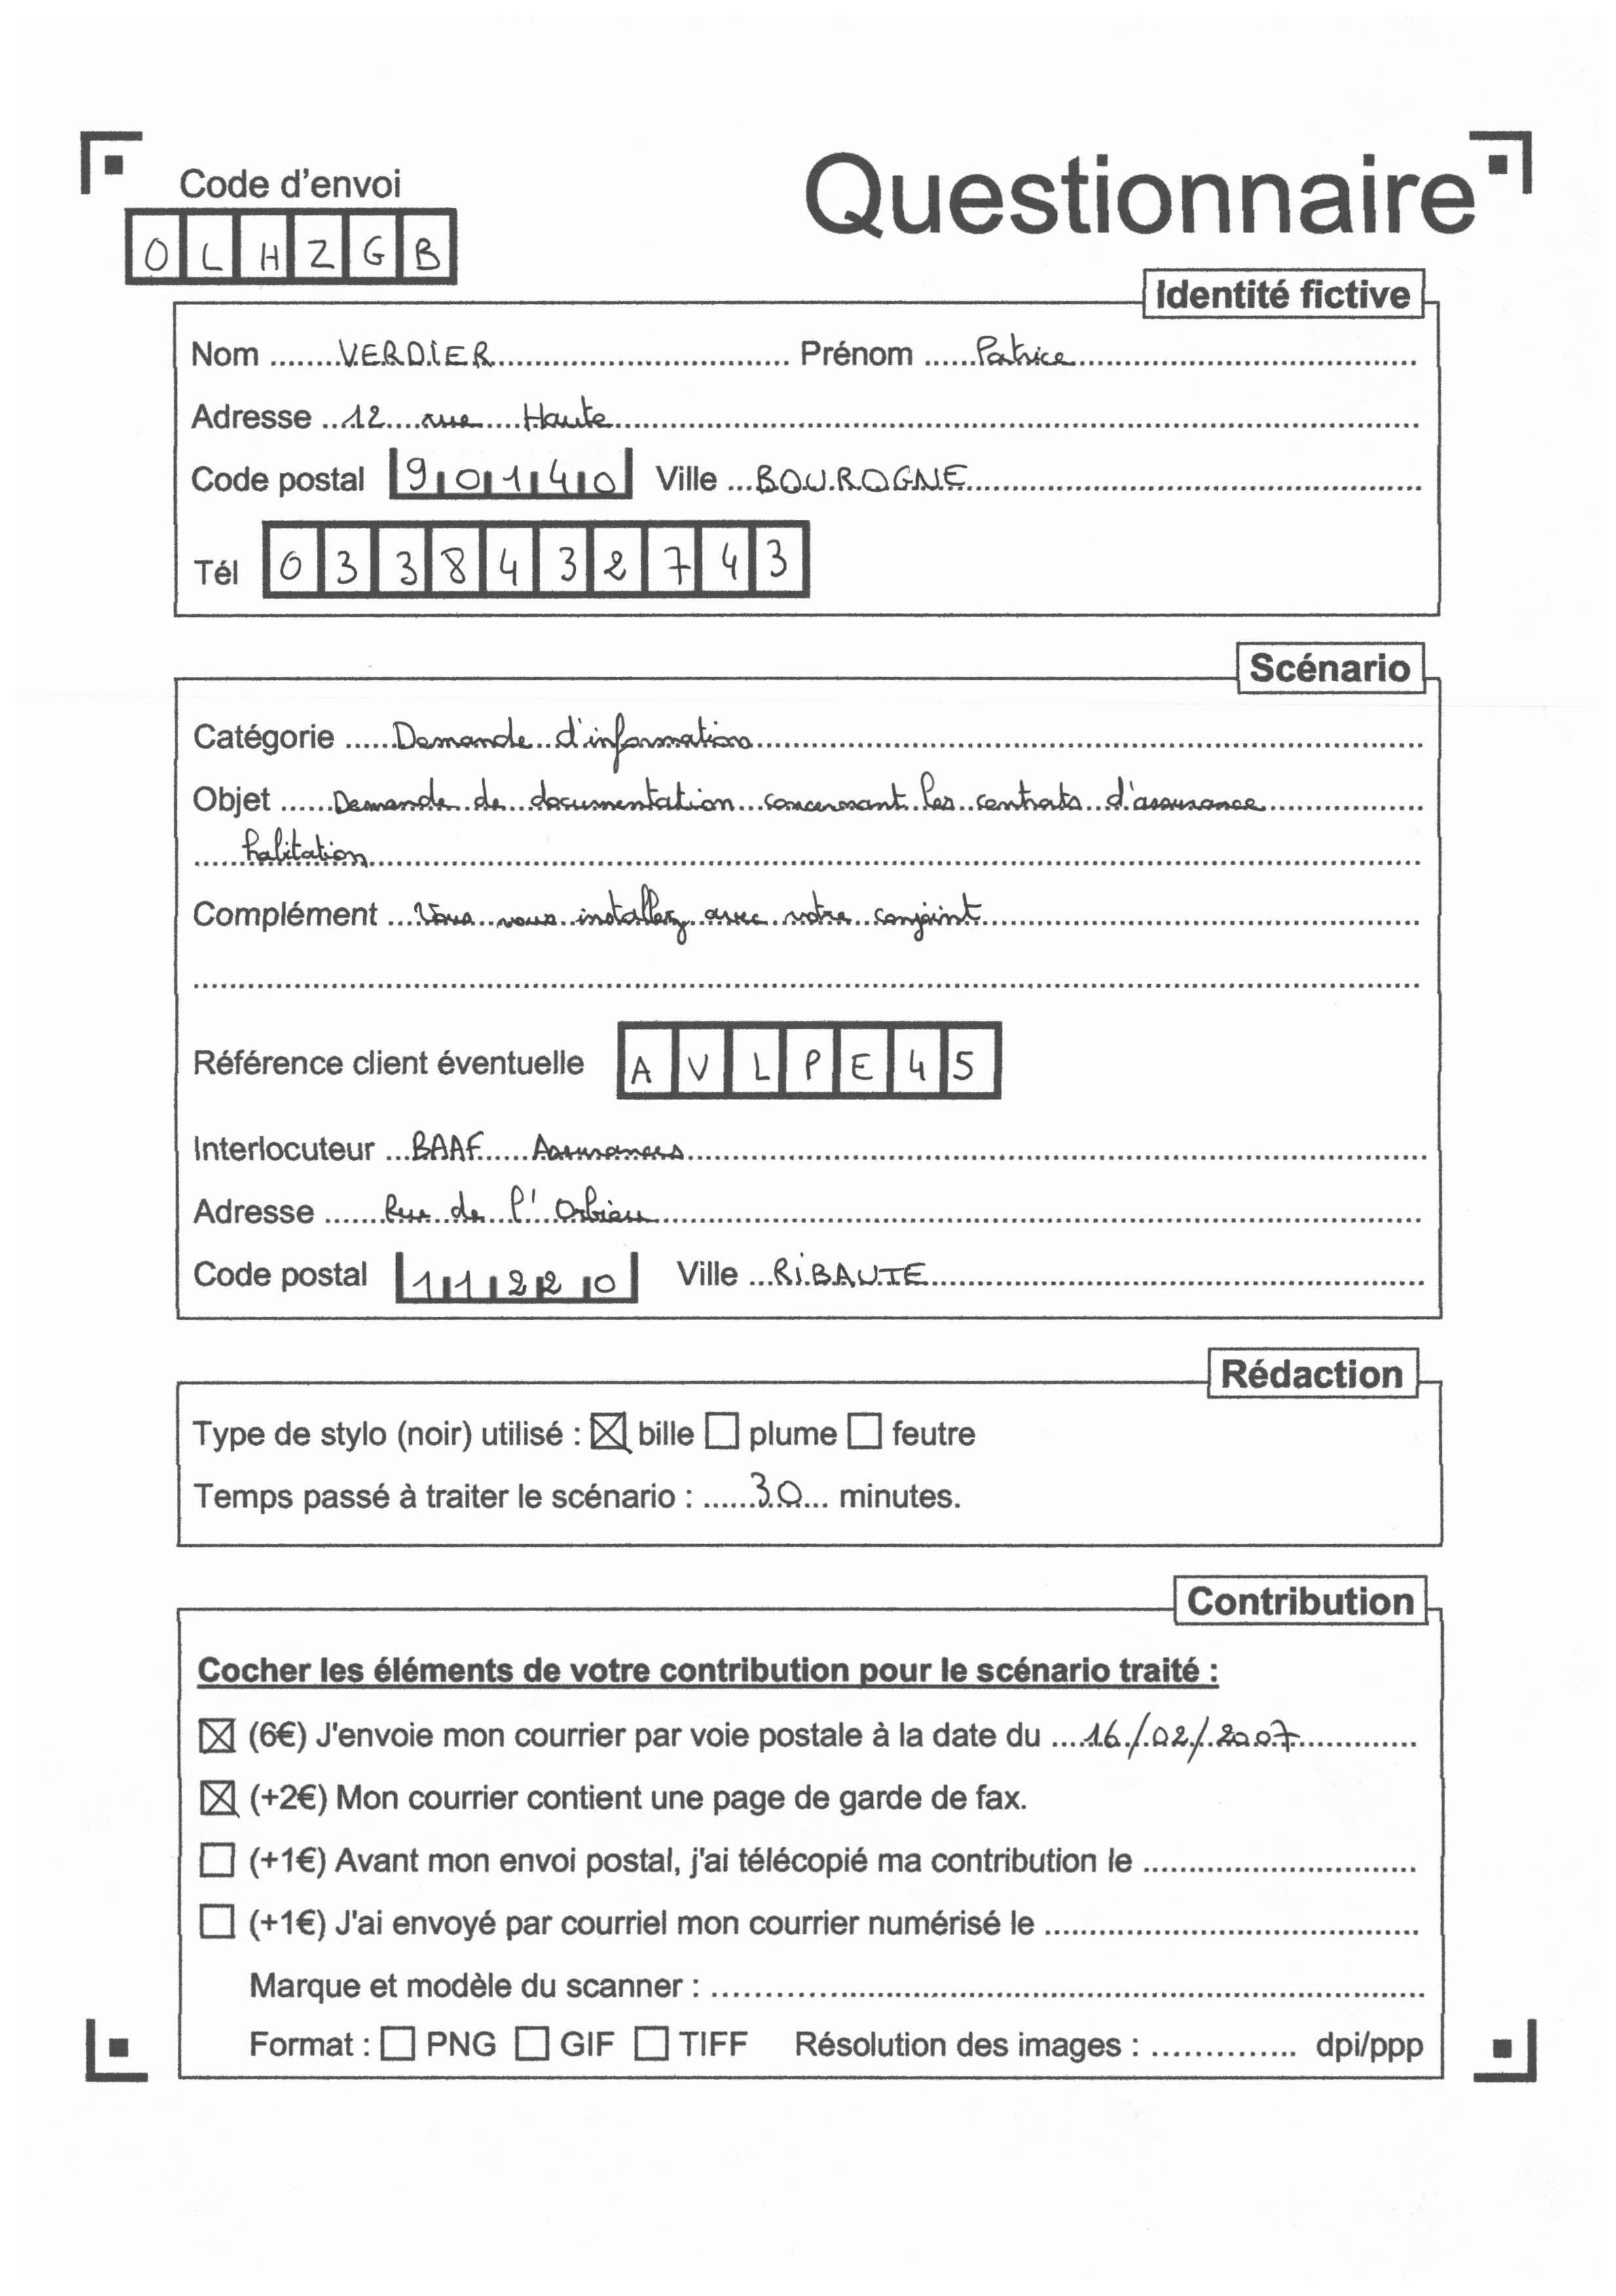 Code d'envoi
Questionnaire
O L H Z G B
Identité fictive
Nom ........VERDIER.................................. Prénom ......Patrice.......................................
Adresse ...12....rue....Haute.......................................................................................
Code postal 90140 Ville ...BOUROGNE....................................................
Tél 0 3 3 8 4 3 2 7 4 3
Scénario
Catégorie ......Demande d'information.................................................................................
Objet ......Demande de documentation concernant les contrats d'assurance...................
......habitation.................................................................................................................................
Complément ...Vous vous installez avec votre conjoint.....................................................
.........................................................................................................................................................
Référence client éventuelle A V L P E 4 5
Interlocuteur ...BAAF.....Assurances.........................................................................................
Adresse .......Rue de l'Orbieu...............................................................................................
Code postal 11220 Ville ...RIBAUTE............................................................
Rédaction
Type de stylo (noir) utilisé : ☒ bille ☐ plume ☐ feutre
Temps passé à traiter le scénario : ......30... minutes.
Contribution
Cocher les éléments de votre contribution pour le scénario traité :
☒ (6€) J'envoie mon courrier par voie postale à la date du ....16/02/2007...............
☒ (+2€) Mon courrier contient une page de garde de fax.
☐ (+1€) Avant mon envoi postal, j'ai télécopié ma contribution le .................................
☐ (+1€) J'ai envoyé par courriel mon courrier numérisé le .............................................
Marque et modèle du scanner : .......................................................................................
Format : ☐ PNG ☐ GIF ☐ TIFF Résolution des images : ................. dpi/ppp